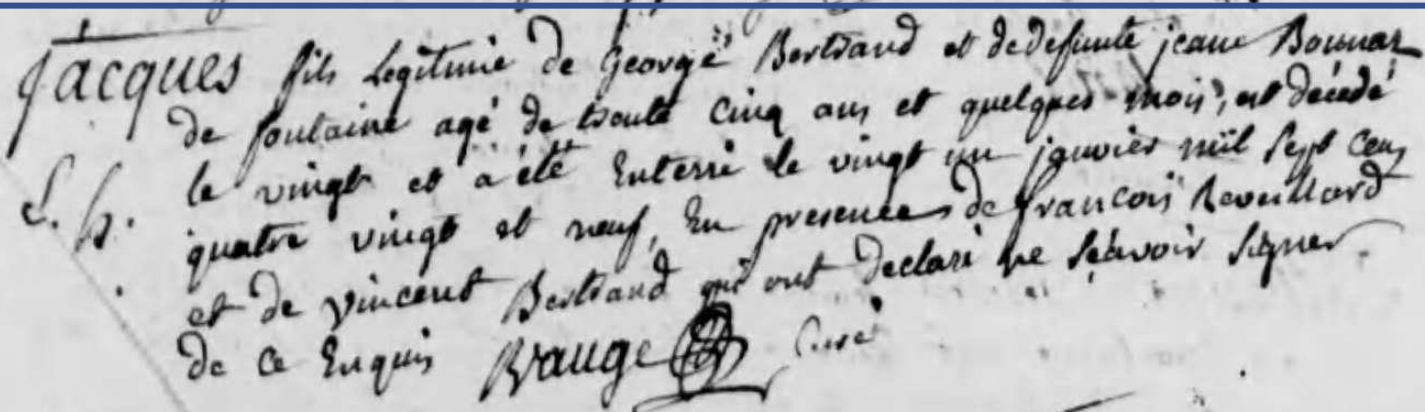 jacques fils Legitime de George Bertrand et de defunte jeane Bounaz
de fontaine agé de trente cinq ans et quelques mois, est décédé
le vingt et a été Enterré le vingt un janvier mil sept cens
quatre vingt et neuf, En presence de françois Reveillard
et de vincent Bertrand qui ont declaré ne scavoir signer
de ce Enquis Curé